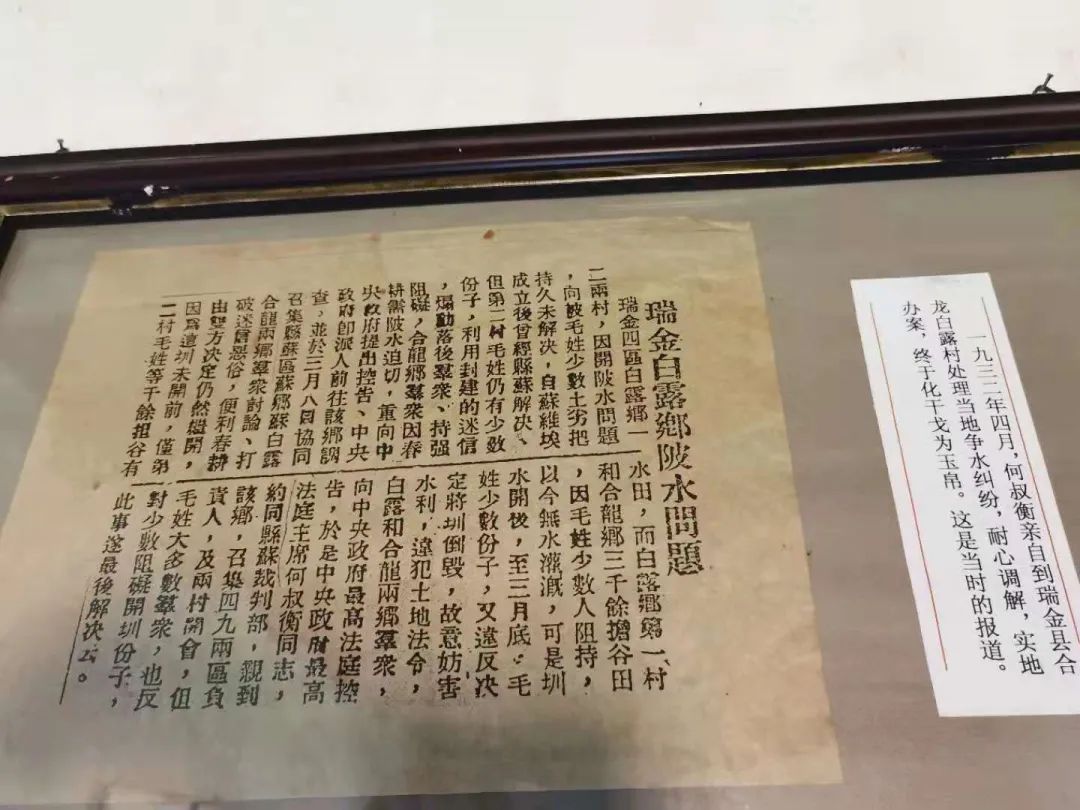 瑞金白露鄉陂水問題
瑞金四區白露鄉一
二兩村,因開陂水問題
,向被毛姓少數土劣把
持久未解决,自蘇維埃
成立後曾經縣蘇解决、
但第二村毛姓仍有少數
份子,利用封建的迷信
,煽動落後羣衆、持强
阻礙,合龍鄉羣衆因春
耕需陂水迫切,重向中
央政府提出控告、中央
政府卽派人前往該鄉調
查,並於三月八日協同
召集縣蘇區蘇鄉蘇白露
合龍兩鄉羣衆討論、打
破迷信惡俗,便利春耕
由雙方决定仍然繼開,
因爲這圳未開前,僅第
二村毛姓等千餘担谷有
水田,而白露鄉第一、村
和合龍鄉三千餘擔谷田
,因毛姓少數人阻持,
以今無水灌溉,可是圳
水開後,至三月底.毛
姓少數份子,又違反决
定將圳倒毀,故意妨害
水利,違犯土地法令,
白露和合龍兩鄉羣衆,
向中央政府最高法庭控
告,於是中央政府最高
法庭主席何叔衡同志,
約同縣蘇裁判部,親到
該鄉,召集四九兩區負
責人,及兩村開會,但
毛姓大多數羣衆,也反
對少數阻礙開圳份子,
此事遂最後解决云。
一九三二年四月,何叔衡亲自到瑞金县合
龙白露村处理当地争水纠纷,耐心调解,实地
办案,终于化干戈为玉帛。这是当时的报道。